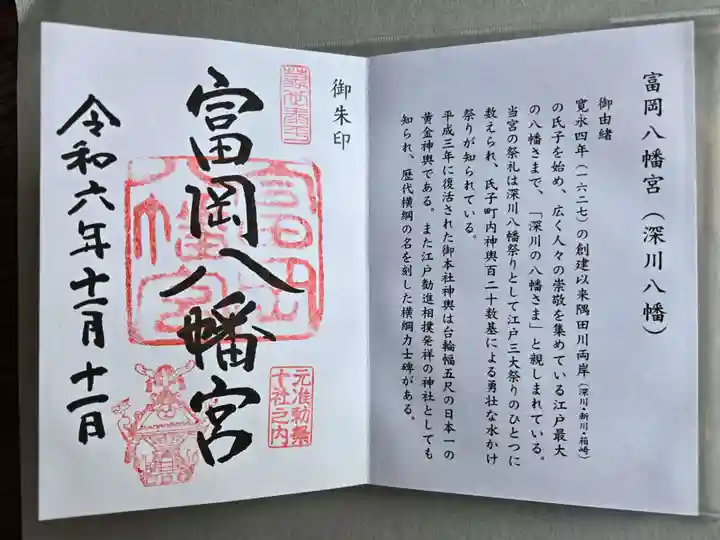 富岡八幡宮（深川八幡）
御由緒
寛永四年（一六二七）の創建以来隅田川両岸（深川・新川・箱崎）
の氏子を始め、広く人々の崇敬を集めている江戸最大
の八幡さまで、「深川の八幡さま」と親しまれている。
当宮の祭礼は深川八幡祭りとして江戸三大祭りのひとつに
数えられ、氏子町内神輿百二十数基による勇壮な水かけ
祭りが知られている。
平成三年に復活された御本社神輿は台輪幅五尺の日本一の
黄金神輿である。また江戸勧進相撲発祥の神社としても
知られ、歴代横綱の名を刻した横綱力士碑がある。
御朱印
富岡八幡宮
元准勅祭
十社之内
令和六年十一月十一日